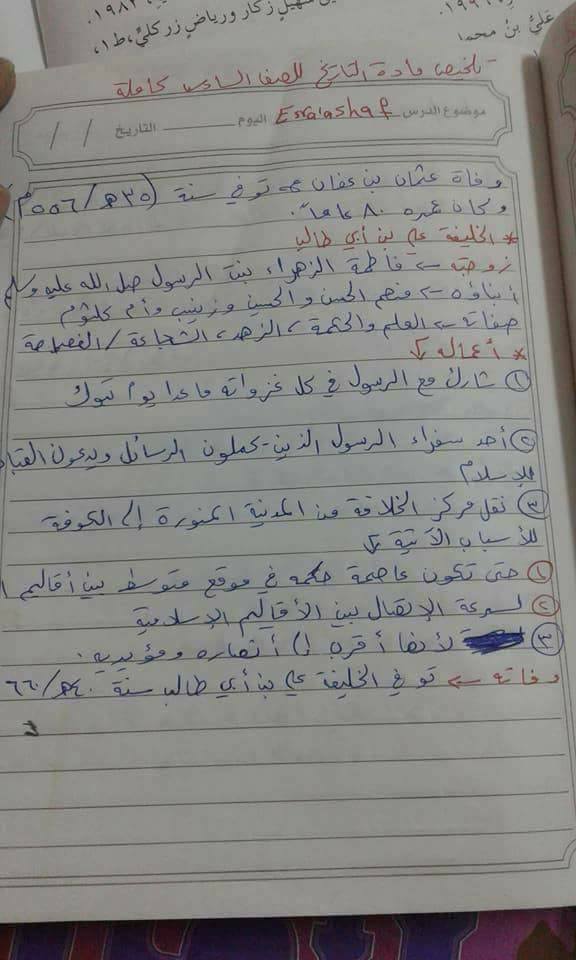 سهيل زكار ورياض زركلي، ط١،
١٩٨٢.
علي بن محمد
- تلخيص مادة التاريخ للصف السادس كاملة
موضوع الدرس Esraashaf اليوم التاريخ / /
وفاة عثمان بن عفان ← توفي سنة (٣٥هـ/٥٥٦م)
وكان عمره ٨٠ عاماً.
* الخليفة علي بن أبي طالب
زوجته ← فاطمة الزهراء بنت الرسول صل الله عليه وسلم
أبناؤه ← منهم الحسن والحسين وزينب وأم كلثوم
صفاته ← العلم والحكمة، الزهد، الشجاعة / الفصاحة
* أعماله ↓
① شارك مع الرسول في كل غزواته ما عدا يوم تبوك
② أحد سفراء الرسول الذين يحملون الرسائل ويدعون
للإسلام
③ نقل مركز الخلافة من المدينة المنورة إلى الكوفة
للأسباب الآتية ↓
① حتى تكون عاصمة حكمه في موقع متوسط بين أقاليم
② لسرعة الإتصال بين الأقاليم الإسلامية
③ لأنها أقرب إلى أنصاره ومؤيديه.
وفاته ← توفي الخليفة علي بن أبي طالب سنة ٤٠هـ/٦٦٠